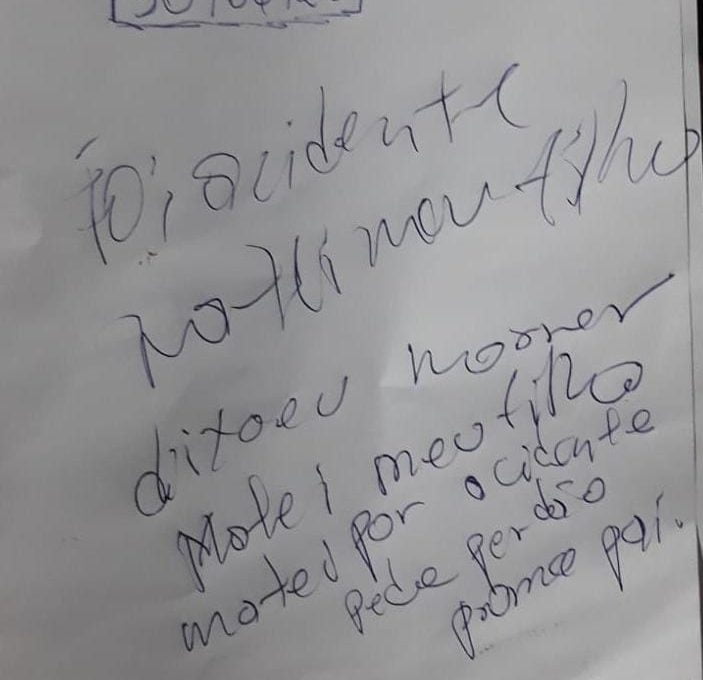 foi acidente
matei meu filho
dixa eu morrer
Matei meu filho
matei por acidente
pede perdão
pro meu pai.